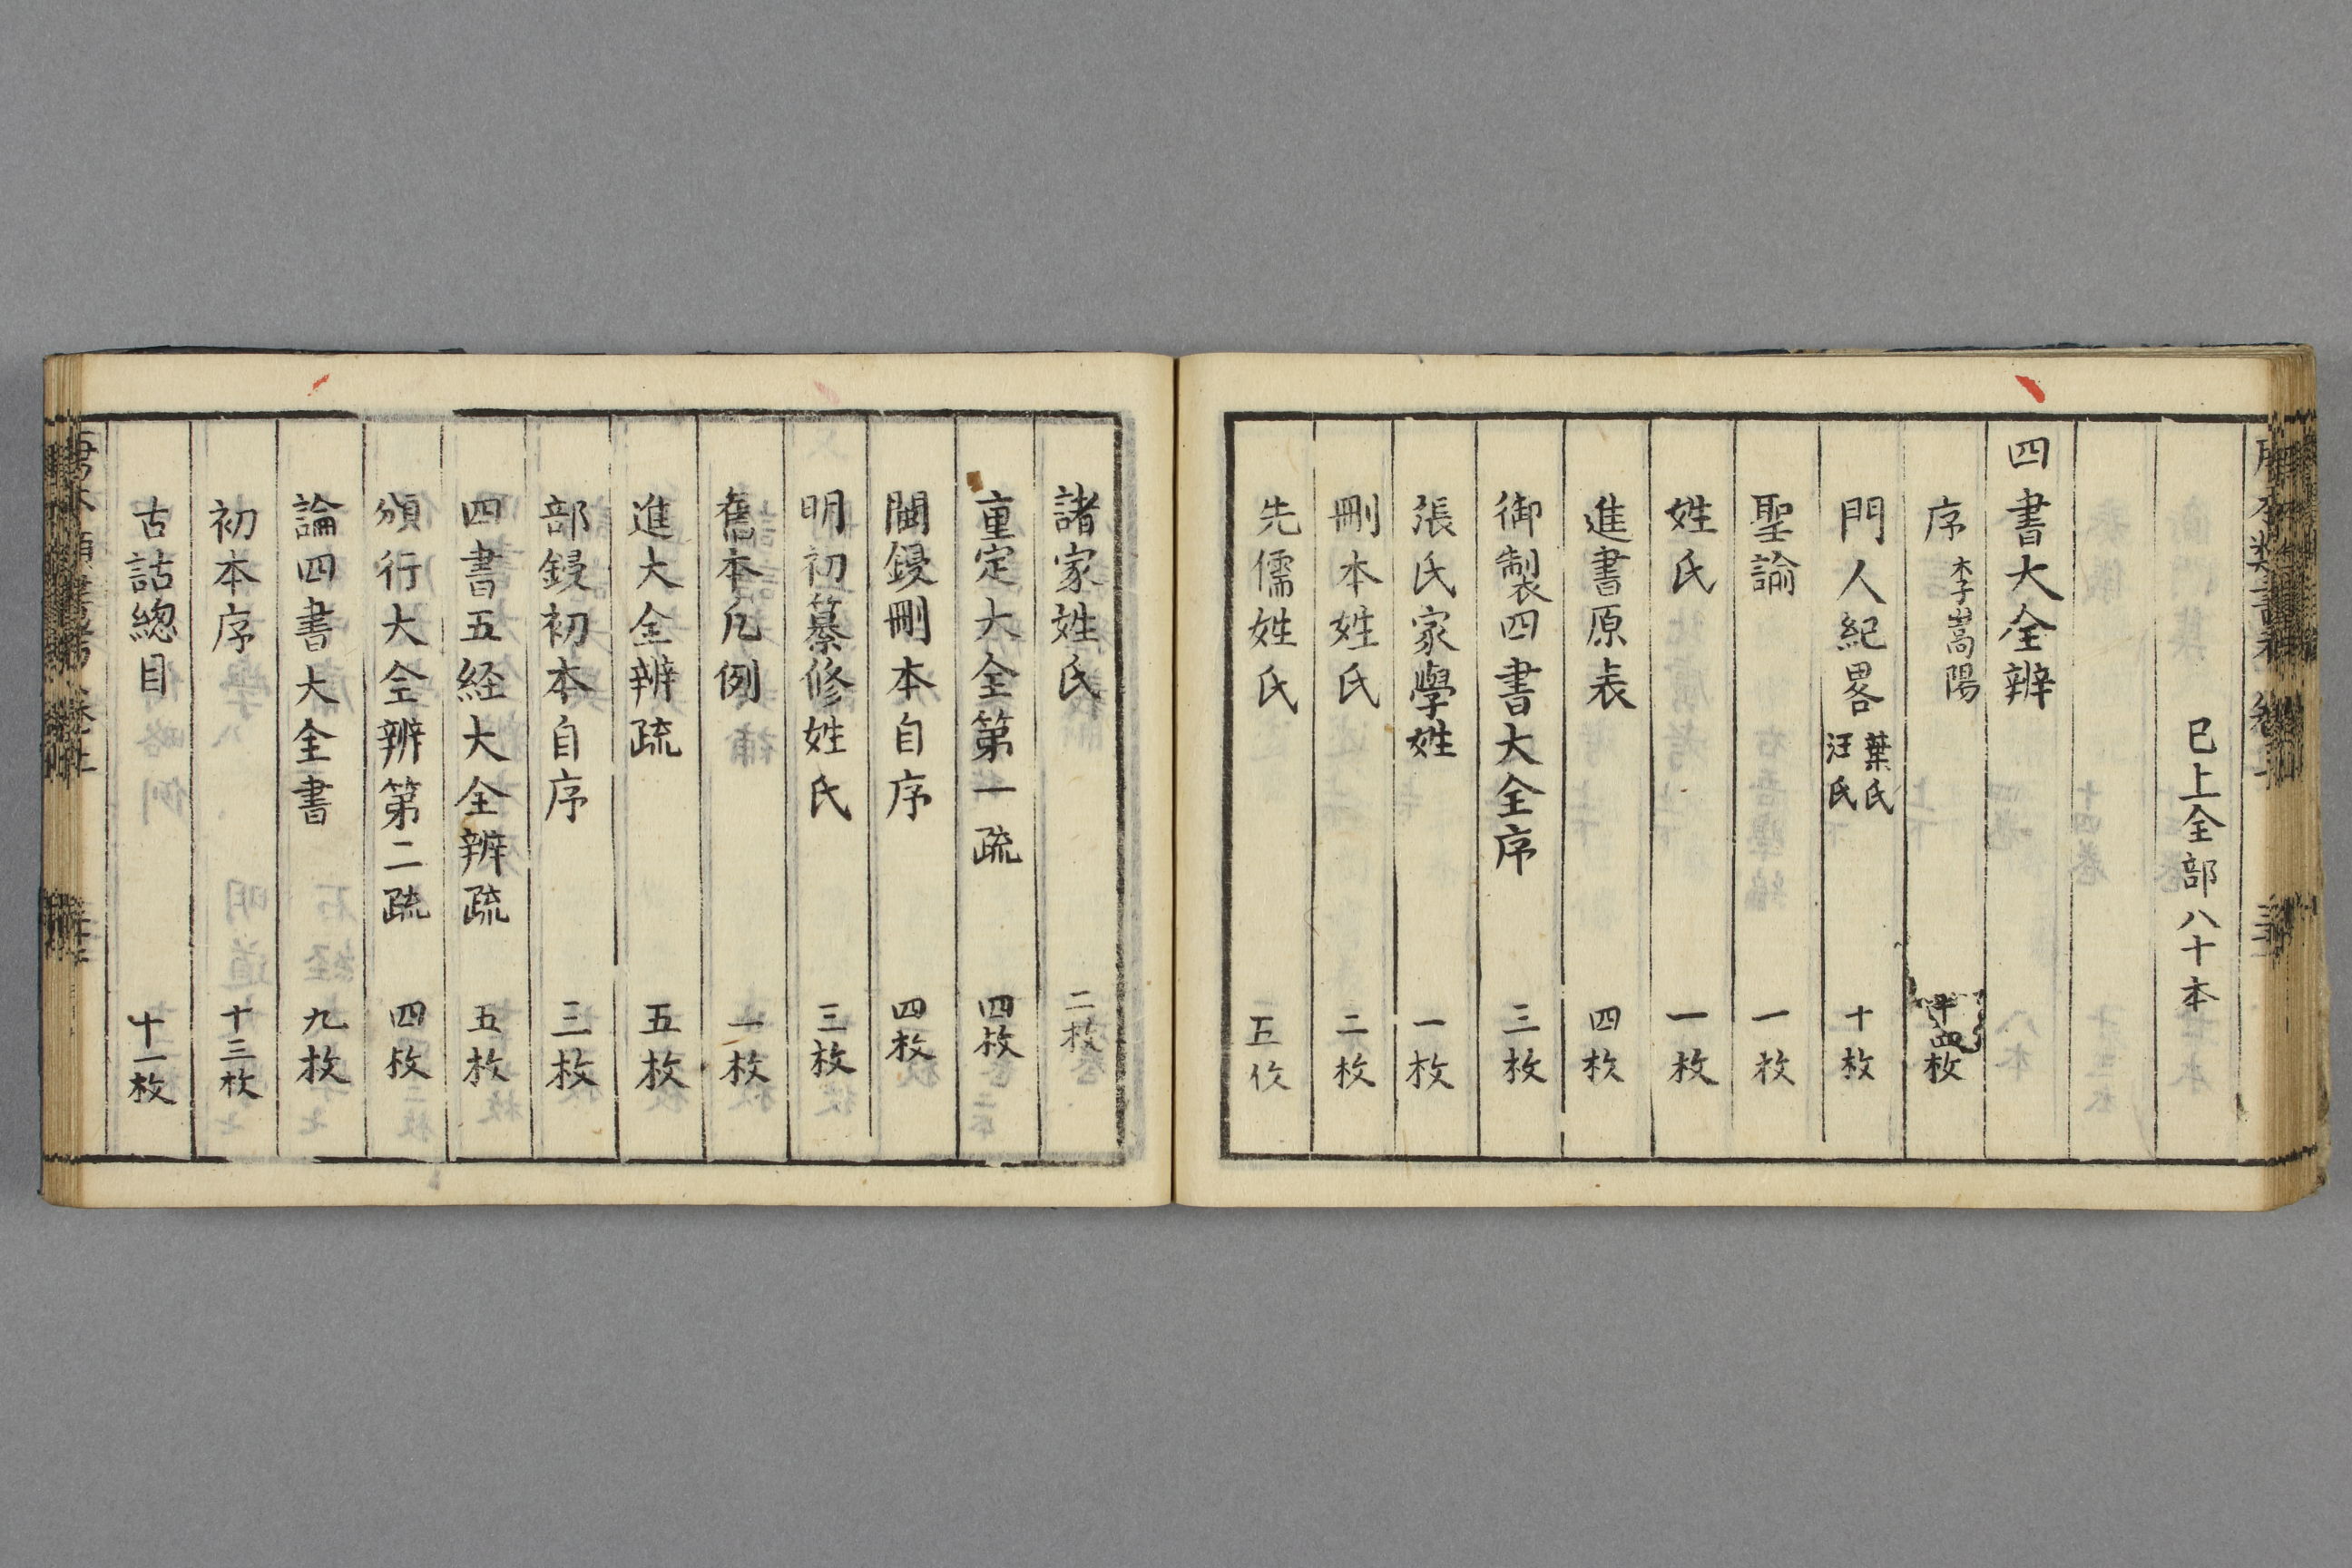 巳上全部八十本
四書大全辨
序 李嵩陽 十四枚
門人紀畧 葉氏 汪氏 十枚
聖諭 一枚
姓氏 一枚
進書原表 四枚
御制衣四書大全序 三枚
張氏家學姓 一枚
刪本姓氏 二枚
先儒姓氏 五枚
諸家姓氏 二枚
重定大全第一疏 四枚
閩鋟刪本自序 四枚
明初纂修姓氏 三枚
舊本凡例 一枚
進大全辨疏 五枚
部鋟初本自序 三枚
四書五経大全辨疏 五枚
頒行大全辨第二疏 四枚
論四書大全書 九枚
初本序 十三枚
古詁總目 十一枚